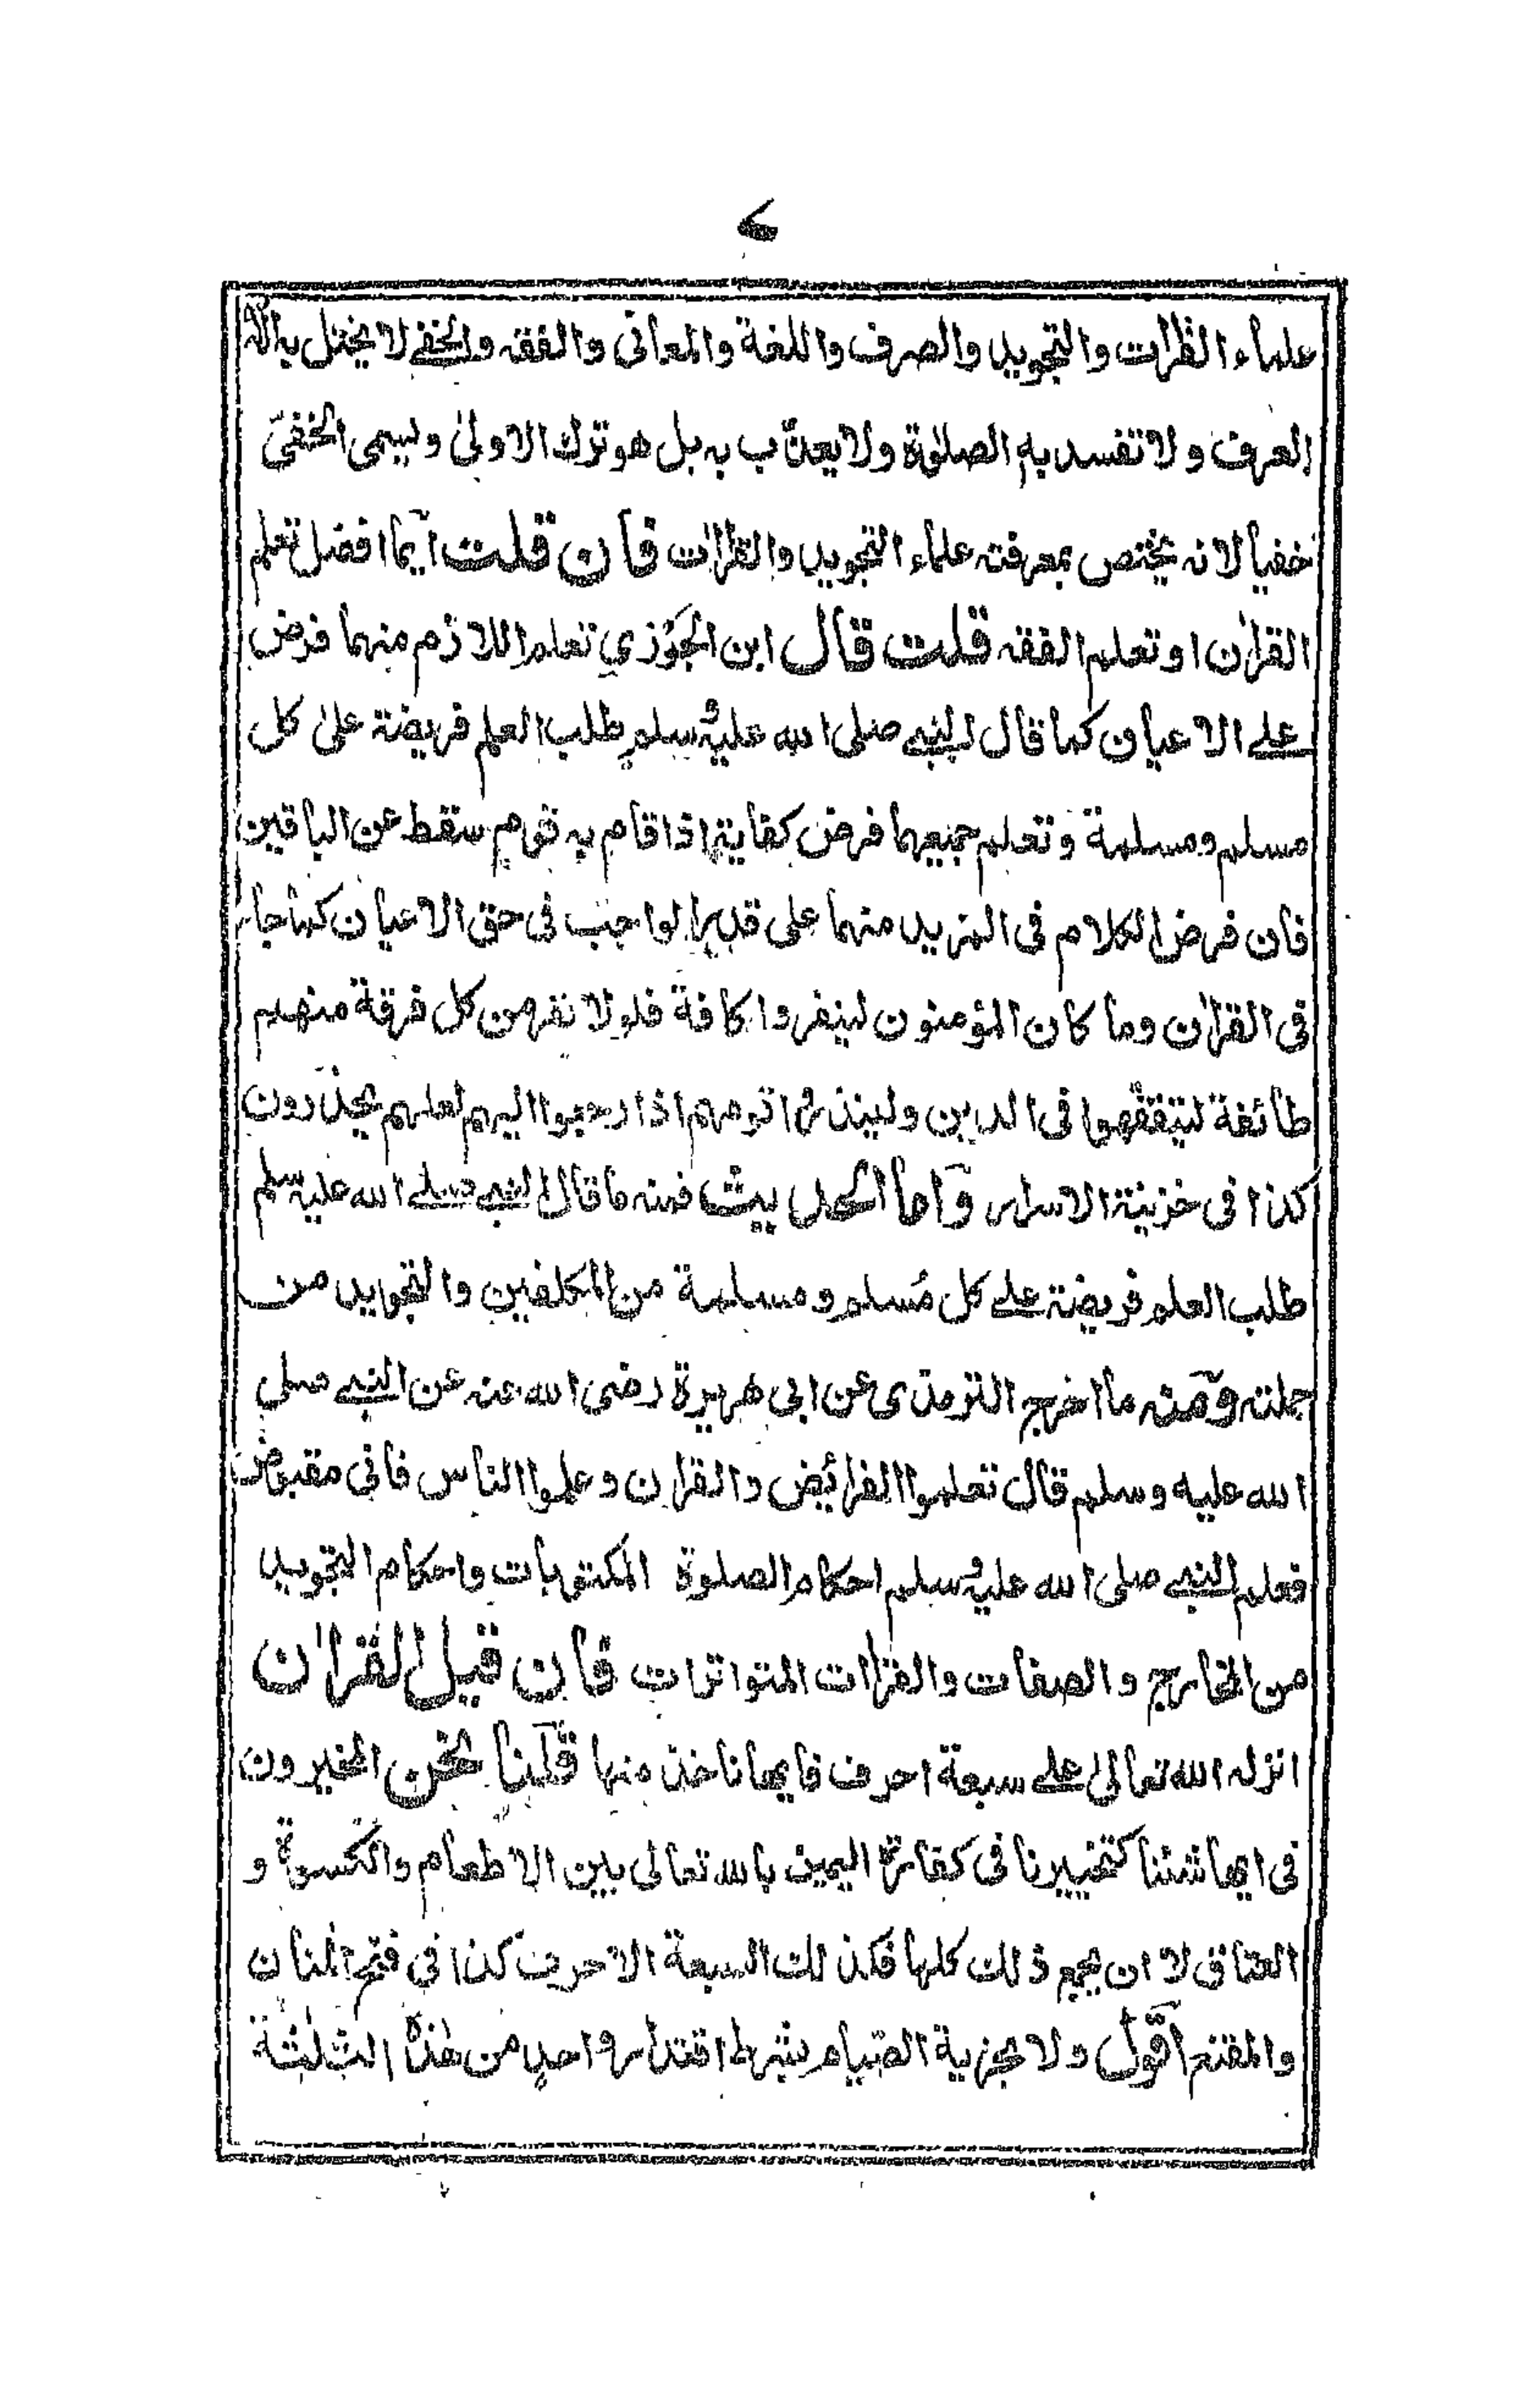 ٧
علماء القراٰت والتجويد والصرف واللغة والمعانى والفقه والخفے لا يختل به
العرف ولا تفسد به الصلوٰة ولا يعذّب به بل هو ترك الاولىٰ وليسمى الخفىّ
خفيا لانه يختص بمعرفته علماء التجويد والقراٰت فان قلت ايّما افضل تعلم
القراٰن او تعلم الفقه قلت قال ابن الجَوْزي تعلم اللازم منهما فرض
علے الاعيان كما قال النبے صلى الله عليه وسلم طلب العلم فريضة علىٰ كل
مسلم ومسلمة وتعلم جميعهما فرض كفاية اذا قام به قوم سقط عن الباقين
فان فرض الكلام فى المزيد منهما على قدر الواجب فى حق الاعيان كما جاء
فى القراٰن وما كان المؤمنون لينفروا كافة فلولا نفر من كل فرقة منهم
طائفة ليتفقهوا فى الدين ولينذروا قومهم اذا رجعوا اليهم لعلهم يحذرون
كذا فى خزينة الاسرار وٓاما الحديث فمنه ما قال النبے صلے الله عليه وسلم
طلب العلم فريضة علے كل مُسلم ومسلمة من المكلفين والتجويد من
جملته وٓمنه ما اخرج الترمذى عن ابى هريرة رضى الله عنه عن النبے صلى
الله عليه وسلم قال تعلموا الفرائض والقراٰن وعلموا الناس فانى مقبوض
فعلم النبے صلى الله عليه وسلم احكام الصلوة المكتوبات واحكام التجويد
من المخارج والصفات والقراٰت المتواترات فان قيل القراٰن
انزله الله تعالىٰ علے سبعة احرف فايها ناخذ منها قلنا نحن المخيرون
فى ايها شئنا كتخييرنا فى كفارة اليمين بالله تعالى بين الاطعام والكسوة و
العتاق لا ان يجمع ذلك كلها فكذلك السبعة الاحرف كذا فى فتح المنان
والمقنع اقول ولا يجزية الصيام بشرط اقتدار واحدٍ من هٰذه الثلٰثة